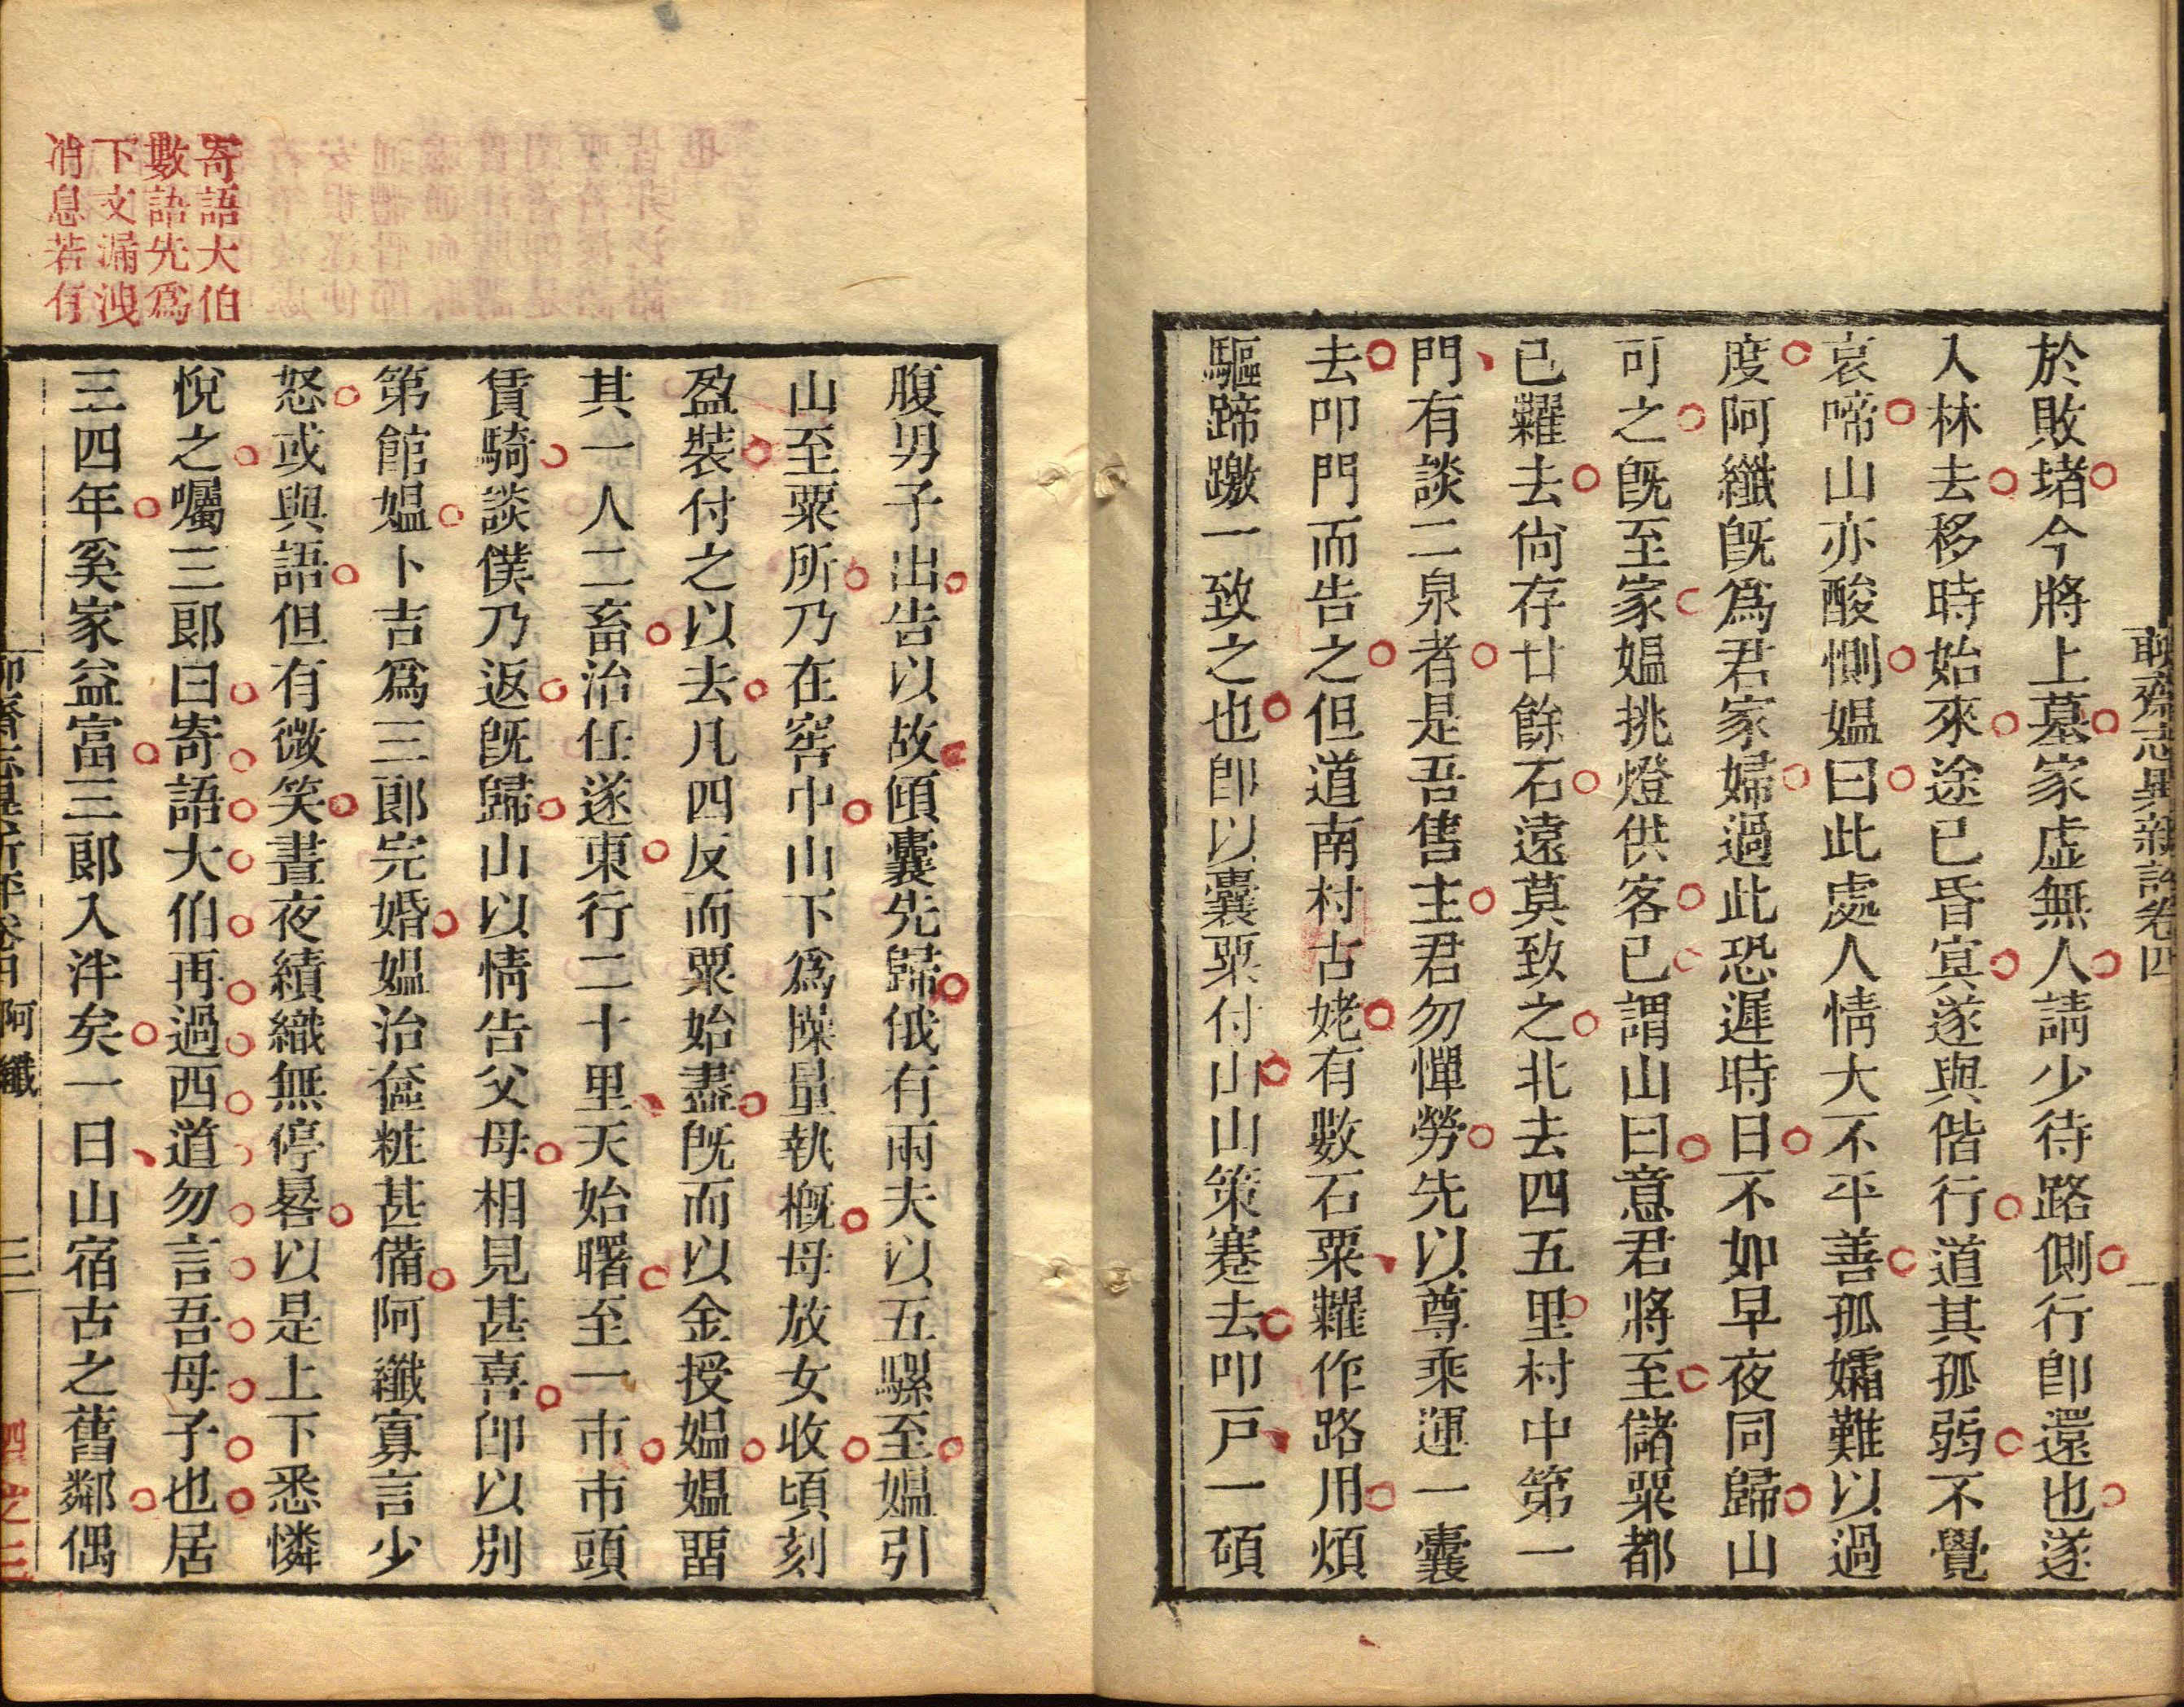 聊齋志異新評卷四
於敗堵今將上墓家虛無人請少待路側行卽還也遂
入林去移時始來途已昏㝠遂與偕行道其孤弱不覺
哀啼山亦酸惻媼曰此處人情大不平善孤孀難以過
度阿纖旣爲君家婦過此恐遲時日不如早夜同歸山
可之旣至家媼挑燈供客已謂山曰意君將至儲粟都
已糶去尙存廿餘石遠莫致之北去四五里村中第一
門有談二泉者是吾售主君勿憚勞先以尊乘運一囊
去叩門而告之但道南村古姥有數石粟糶作路用煩
驅蹄躈一致之也卽以囊粟付山山策蹇去叩戶一碩
寄語大伯
數語先爲
下文漏洩
消息若有
腹男子出告以故傾囊先歸俄有兩夫以五騾至媼引
山至粟所乃在窖中山下爲操量執概母放女收頃刻
盈裝付之以去凡四反而粟始盡旣而以金授媼媼畱
其一人二畜治任遂東行二十里天始曙至一市市頭
賃騎談僕乃返旣歸山以情告父母相見甚喜卽以別
第館媼卜吉爲三郎完婚媼治奩粧甚備阿纖寡言少
怒或與語但有微笑晝夜績織無停晷以是上下悉憐
悅之囑三郎曰寄語大伯再過西道勿言吾母子也居
三四年奚家益富三郎入泮矣一日山宿古之舊鄰偶
聊齋志異新評卷四 阿纖 三
四之三